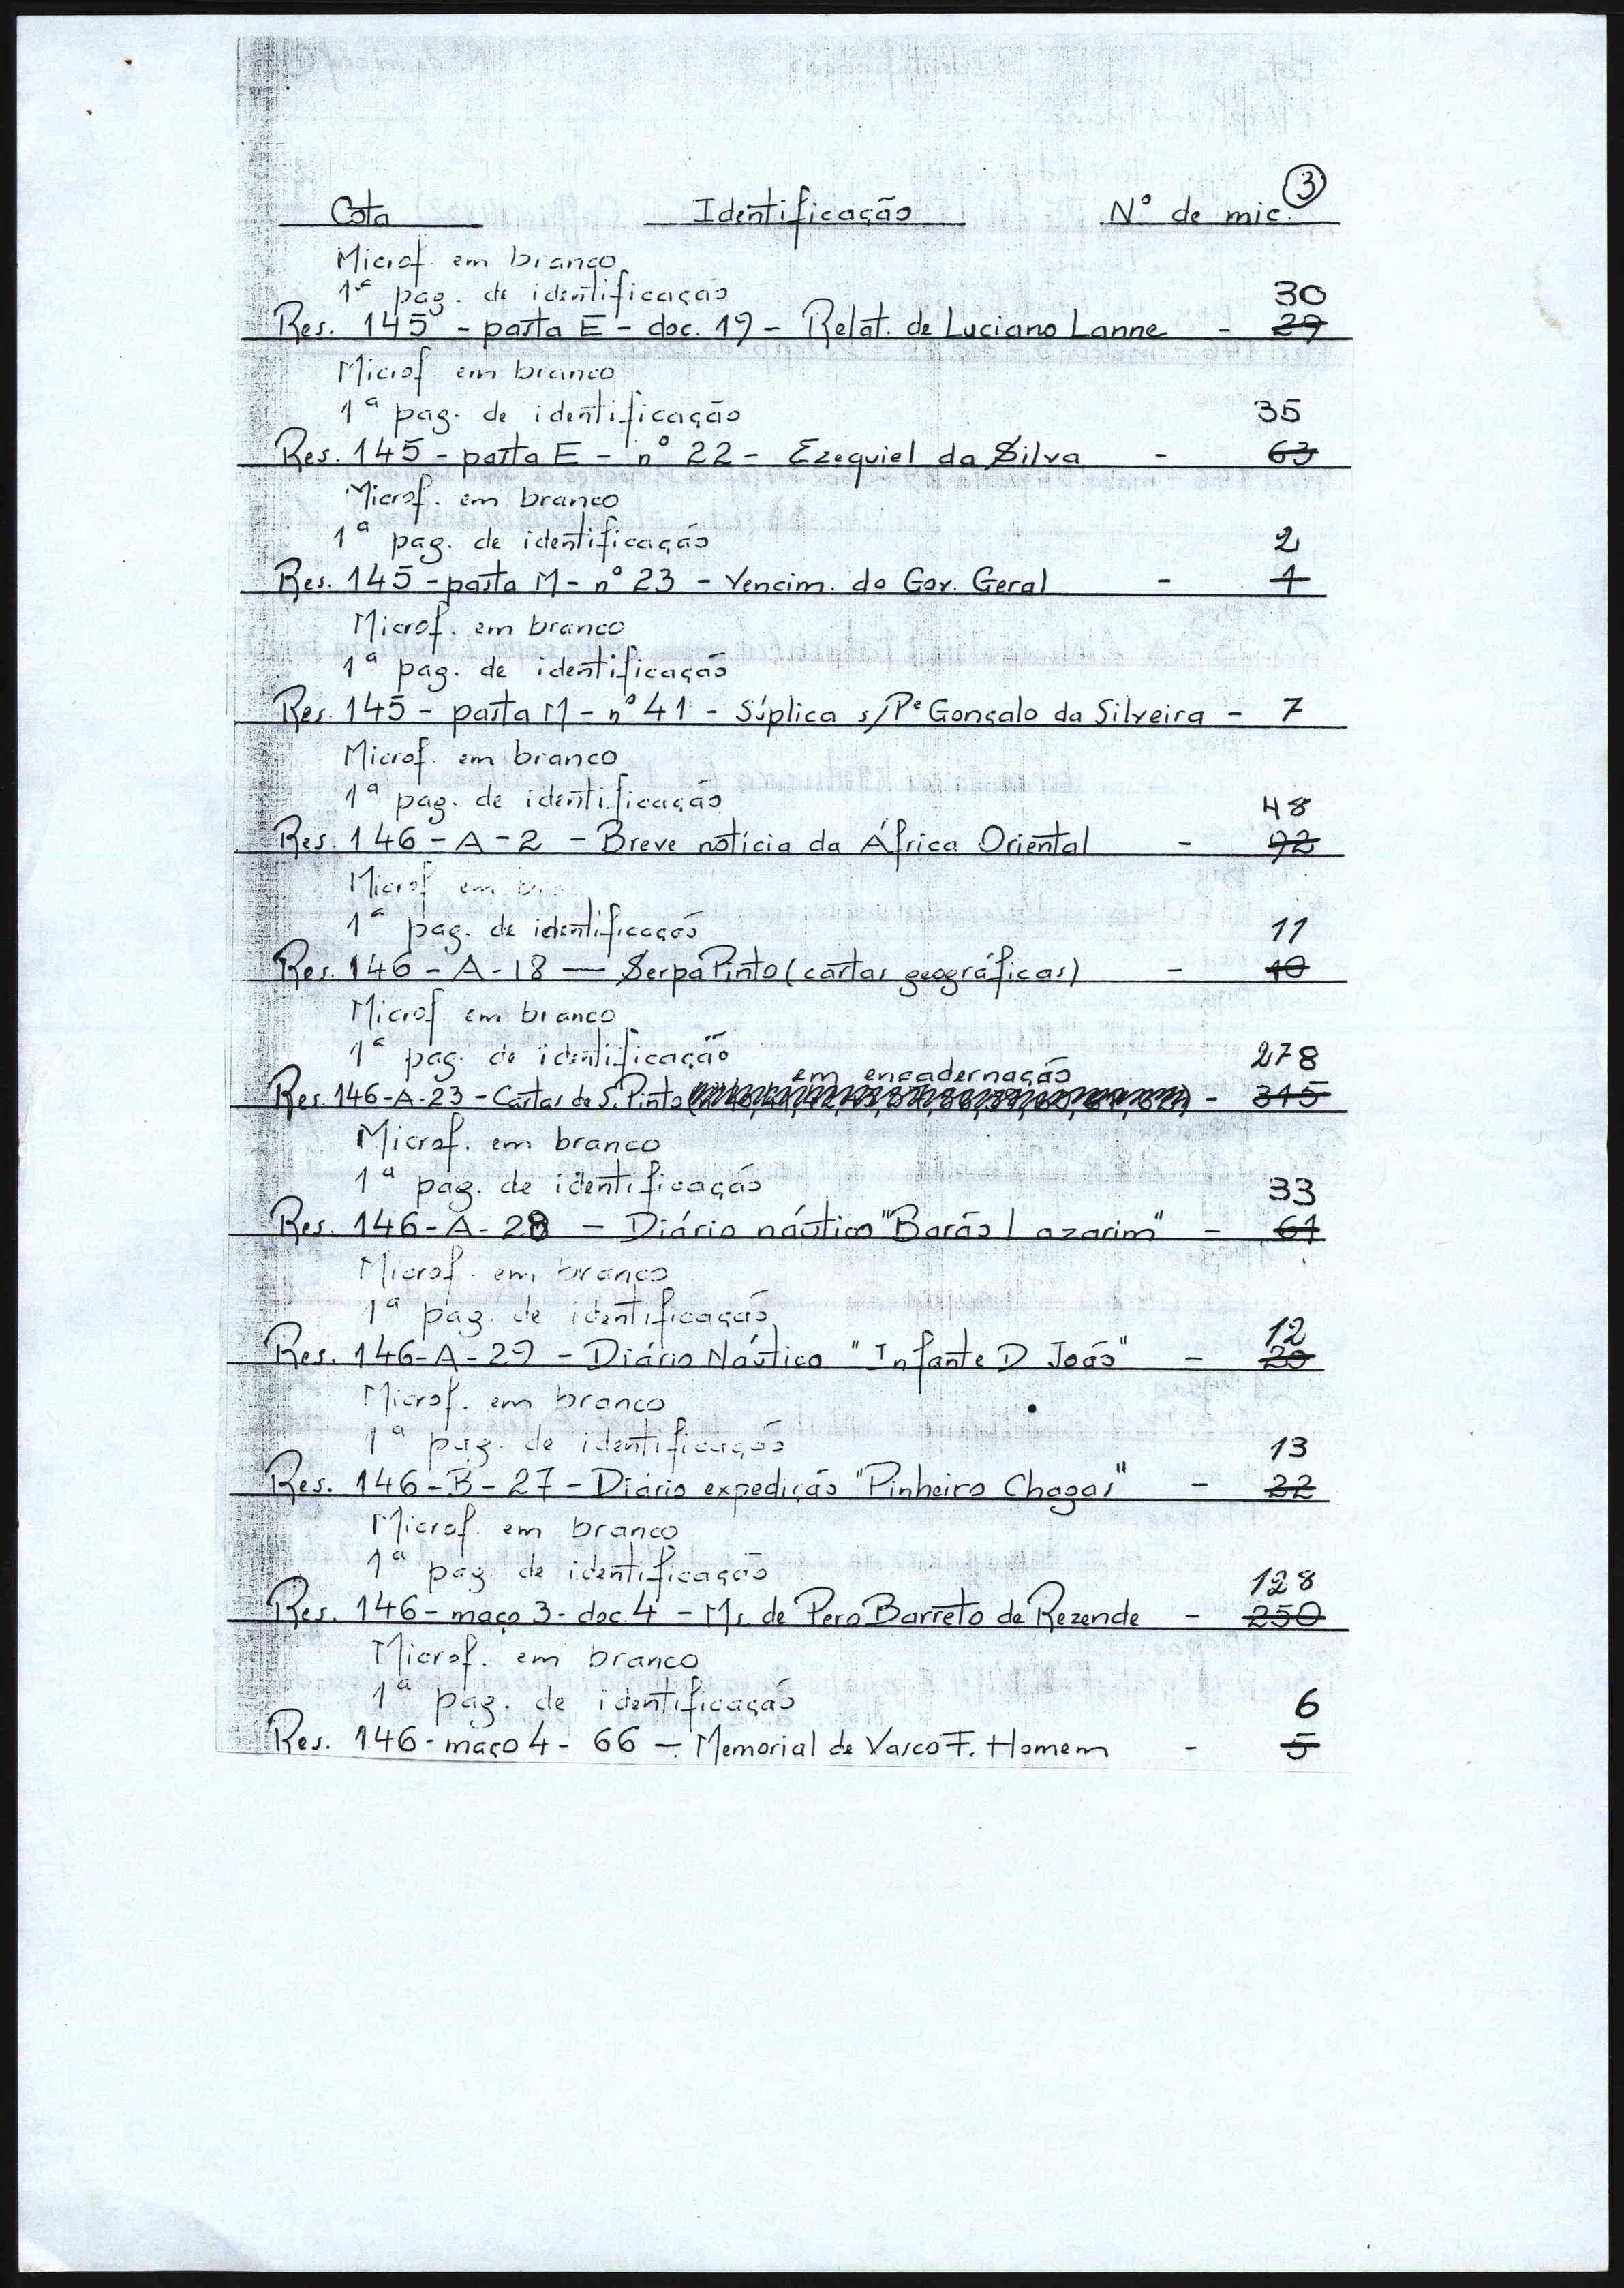 3
Cota Identificação Nº de mic.
Microf. em branco
1ª pag. de identificação 30
Res. 145 - pasta E - doc. 19 - Relat. de Luciano Lanne - 29
Microf em branco
1ª pag. de identificação 35
Res. 145 - pasta E - nº 22 - Ezequiel da Silva - 63
Microf. em branco
1ª pag. de identificação 2
Res. 145 - pasta M - nº 23 - Vencim. do Gov. Geral - 1
Microf. em branco
1ª pag. de identificação
Res. 145 - pasta M - nº 41 - Súplica s/Pe Gonçalo da Silveira - 7
Microf. em branco
1ª pag. de identificação 48
Res. 146 - A - 2 - Breve notícia da África Oriental - 92
Microf em
1ª pag. de identificação 11
Res. 146 - A - 18 — Serpa Pinto (cartas geográficas) - 10
Microf em branco
1ª pag. de identificação 278
em encadernação
Res. 146-A-23 - Cartas de S. Pinto - 315
Microf. em branco
1ª pag. de identificação 33
Res. 146-A-28 - Diário náutico "Barão Lazarim" - 61
Microf. em branco
1ª pag. de identificação 12
Res. 146-A-29 - Diário Náutico "Infante D João" - 20
Microf. em branco
1ª pag. de identificação 13
Res. 146-B-27 - Diário expedição "Pinheiro Chagas" - 22
Microf. em branco
1ª pag de identificação 128
Res. 146 - maço 3 - doc. 4 - Ms. de Pero Barreto de Rezende - 250
Microf. em branco
1ª pag. de identificação 6
Res. 146 - maço 4 - 66 - Memorial de Vasco F. Homem - 5